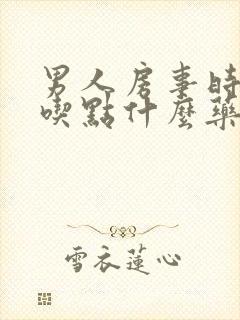 男人房事时
喫點什麼藥
雪衣蓮心